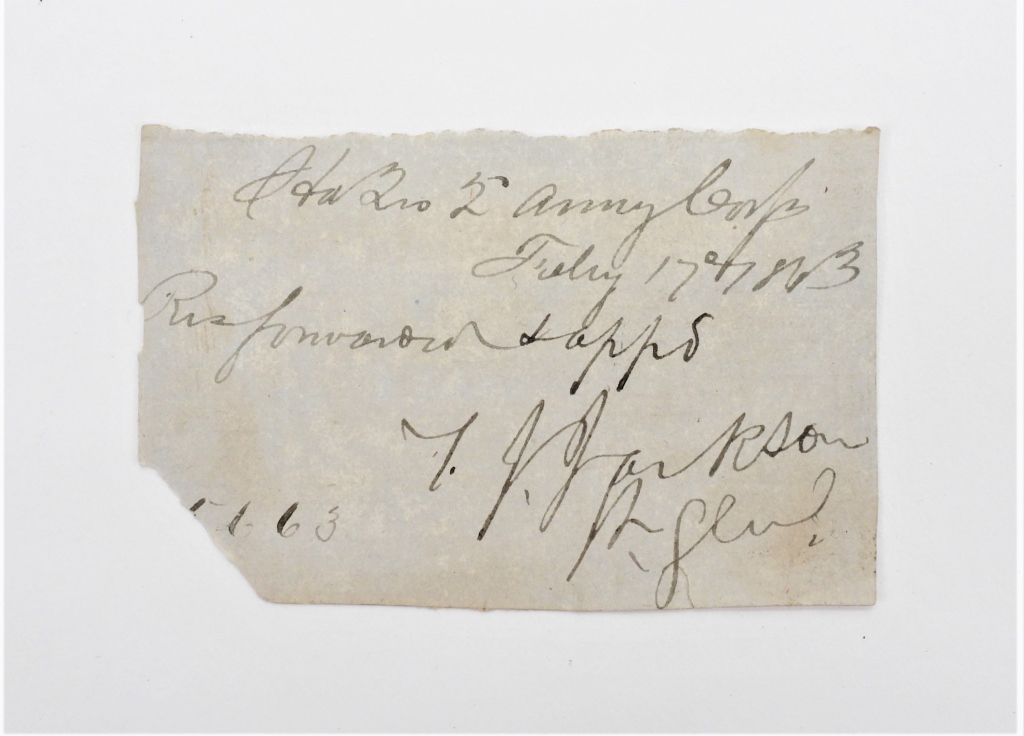 Hd Qrs 2 Army Corps
Feby 17th 1863
Res forwarded & appd
T. J. Jackson
Lt. Genl.
63